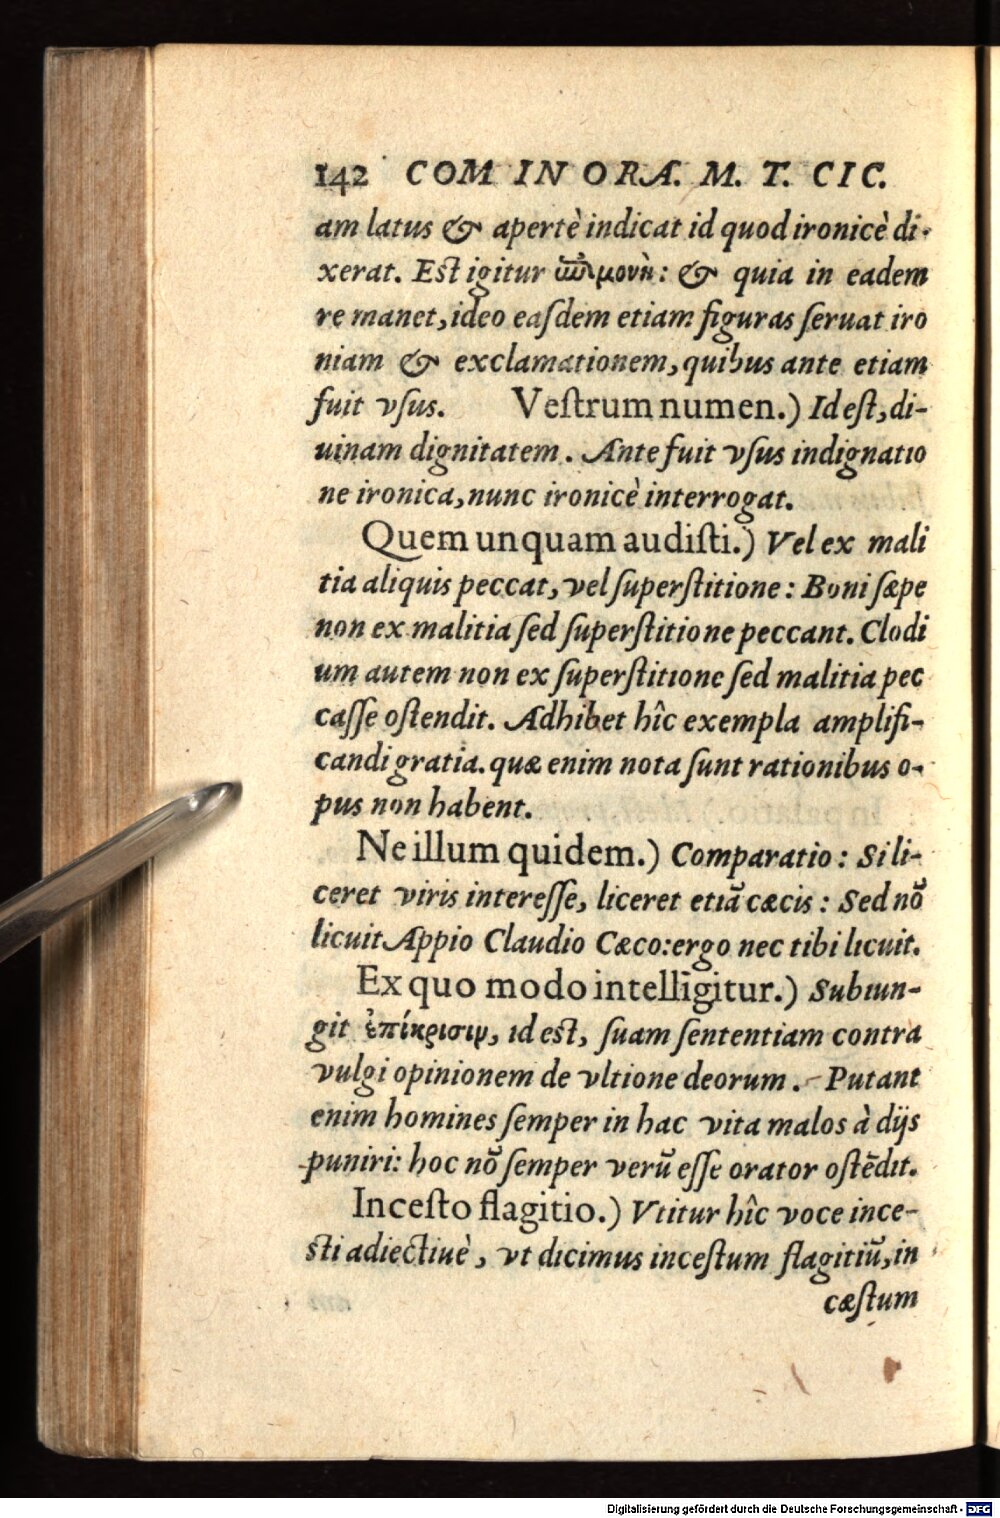 142 COM IN ORA. M. T. CIC.
am latus & apertè indicat id quod ironicè di-
xerat. Est igitur ἐπιμονὴ: & quia in eadem
re manet, ideo easdem etiam figuras seruat iro
niam & exclamationem, quibus ante etiam
fuit vsus. Vestrum numen.) Id est, di-
uinam dignitatem. Ante fuit vsus indignatio
ne ironica, nunc ironicè interrogat.
Quem unquam audisti.) Vel ex mali
tia aliquis peccat, vel superstitione: Boni sæpe
non ex malitia sed superstitione peccant. Clodi
um autem non ex superstitione sed malitia pec
casse ostendit. Adhibet hîc exempla amplifi-
candi gratia. quæ enim nota sunt rationibus o-
pus non habent.
Ne illum quidem.) Comparatio: Si li-
ceret viris interesse, liceret etiā cæcis: Sed nō
licuit Appio Claudio Cæco: ergo nec tibi licuit.
Ex quo modo intelligitur.) Subiun-
git ἐπίκρισιν, id est, suam sententiam contra
vulgi opinionem de vltione deorum. Putant
enim homines semper in hac vita malos à dijs
puniri: hoc nō semper verū esse orator ostēdit.
Incesto flagitio.) Vtitur hîc voce ince-
sti adiectiuè, vt dicimus incestum flagitiū, in
cæstum
Digitalisierung gefördert durch die Deutsche Forschungsgemeinschaft - DFG